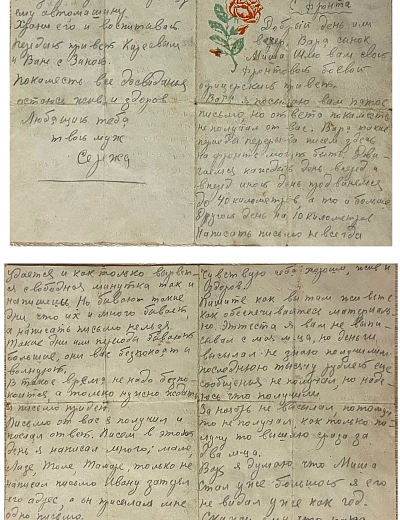 ему автомашину
Храни его и воспитывай.
передай привет
и Ване с
Покаместь все досвидания
остаюсь жив, и здоров.
Любящий тебя
твой муж
Сережа
С фронта
Добрый день или
вечер. Вара сынок
Миша Шлю вам свой
фронтовой боевой
офицерский привет.
Вара я посылаю вам пятое
письмо, но ответа покаместь
не получал от вас. Вара такие
писем здесь
на фронте могут быть. Дви-
гаемся каждый день вперед и
вперед иной день продвинемся
до 40 километров, а то и больше
в другой день на 10 километров
Написать письмо не всегда
удается и как только вырвет-
ся свободная минутка так и
напишешь. Но бывают такие
дни, что их и много бывает
а написать письмо нельзя.
Такие дни или периоды бывают
большие, они вас безпокоят и
волнуют.
В такое время не надо безпо-
коится, а только нужно ждать
и письмо прийдет.
Письмо от вас я получил и
послал ответ. Писем в этот
день я написал много; маме,
Лиде, Толе, Тамаре, только не
написал письмо Ивану затерял
его адрес, а он присылал мне
одно письмо.
Чувствую себя хорошо, жив и
здоров.
Пишите как вы там живете
как обеспечиваетесь материаль-
но. Аттестат я вам не выпи-
сывал с мая м-ца, но деньги
высылал не знаю получили
последнюю тысячу рублей еще
сообщенья не получал но наде-
юсь что получили.
За ноябрь не высылал потому,
что не получал как только по-
лучу то вышлю сразу за
два м-ца.
Вара я думаю что Миша
стал уже большой я его
не видал уже как год.